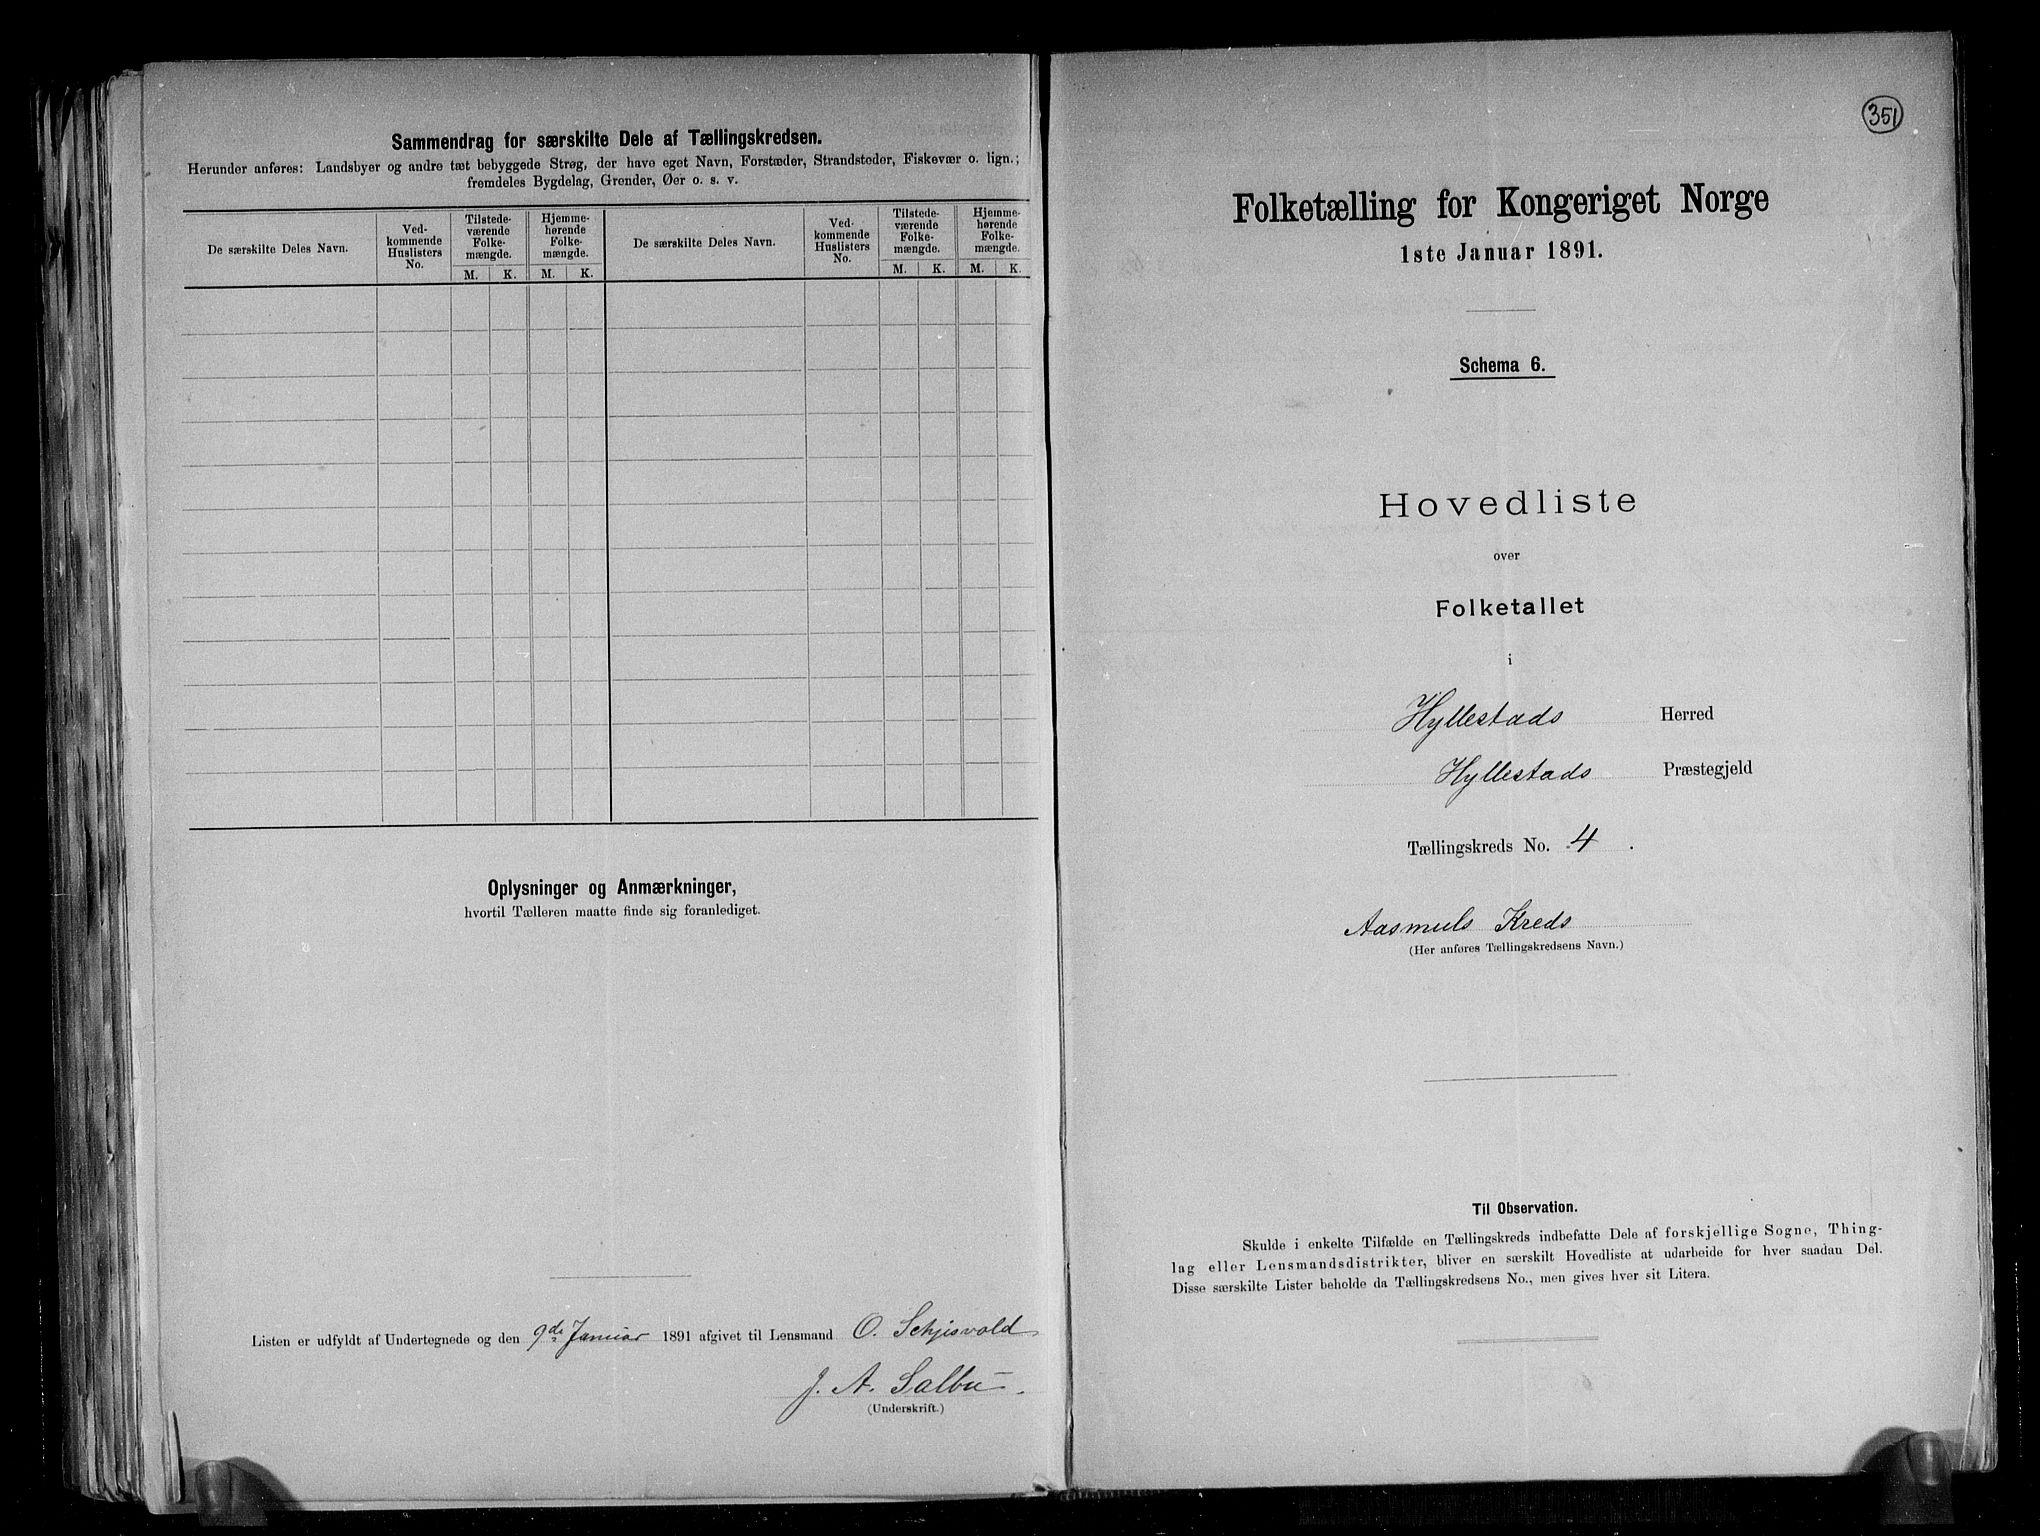 Sammendrag for særskilte Dele af Tællingskredsen.
Herunder anføres: Landsbyer og andre tæt bebyggede Strøg, der have eget Navn, Forstæder, Strandsteder, Fiskevær o. lign.;
fremdeles Bygdelag, Grender, Øer o. s. v.
De særskilte Deles Navn.
Ved-
kommende
Huslisters
No.
Tilstede-
værende
Folke-
mængde.
Hjemme-
hørende
Folke-
mængde.
De særskilte Deles Navn.
Ved-
kommende
Huslisters
No.
Tilstede-
værende
Folke-
mængde.
Hjemme-
hørende
Folke-
mængde.
M. K. M. K. M. K. M. K.
Oplysninger og Anmærkninger,
hvortil Tælleren maatte finde sig foranlediget.
Listen er udfyldt af Undertegnede og den 9de Januar 1891 afgivet til Lensmand O. Schjisvold
J. A. Salbu.
(Underskrift.)
351
Folketælling for Kongeriget Norge
1ste Januar 1891.
Schema 6.
Hovedliste
over
Folketallet
i
Hyllestads Herred
Hyllestads Præstegjeld
Tællingskreds No. 4.
Aasmuls Kreds
(Her anføres Tællingskredsens Navn.)
Til Observation.
Skulde i enkelte Tilfælde en Tællingskreds indbefatte Dele af forskjellige Sogne, Thing-
lag eller Lensmandsdistrikter, bliver en særskilt Hovedliste at udarbeide for hver saadan Del.
Disse særskilte Lister beholde da Tællingskredsens No., men gives hver sit Litera.